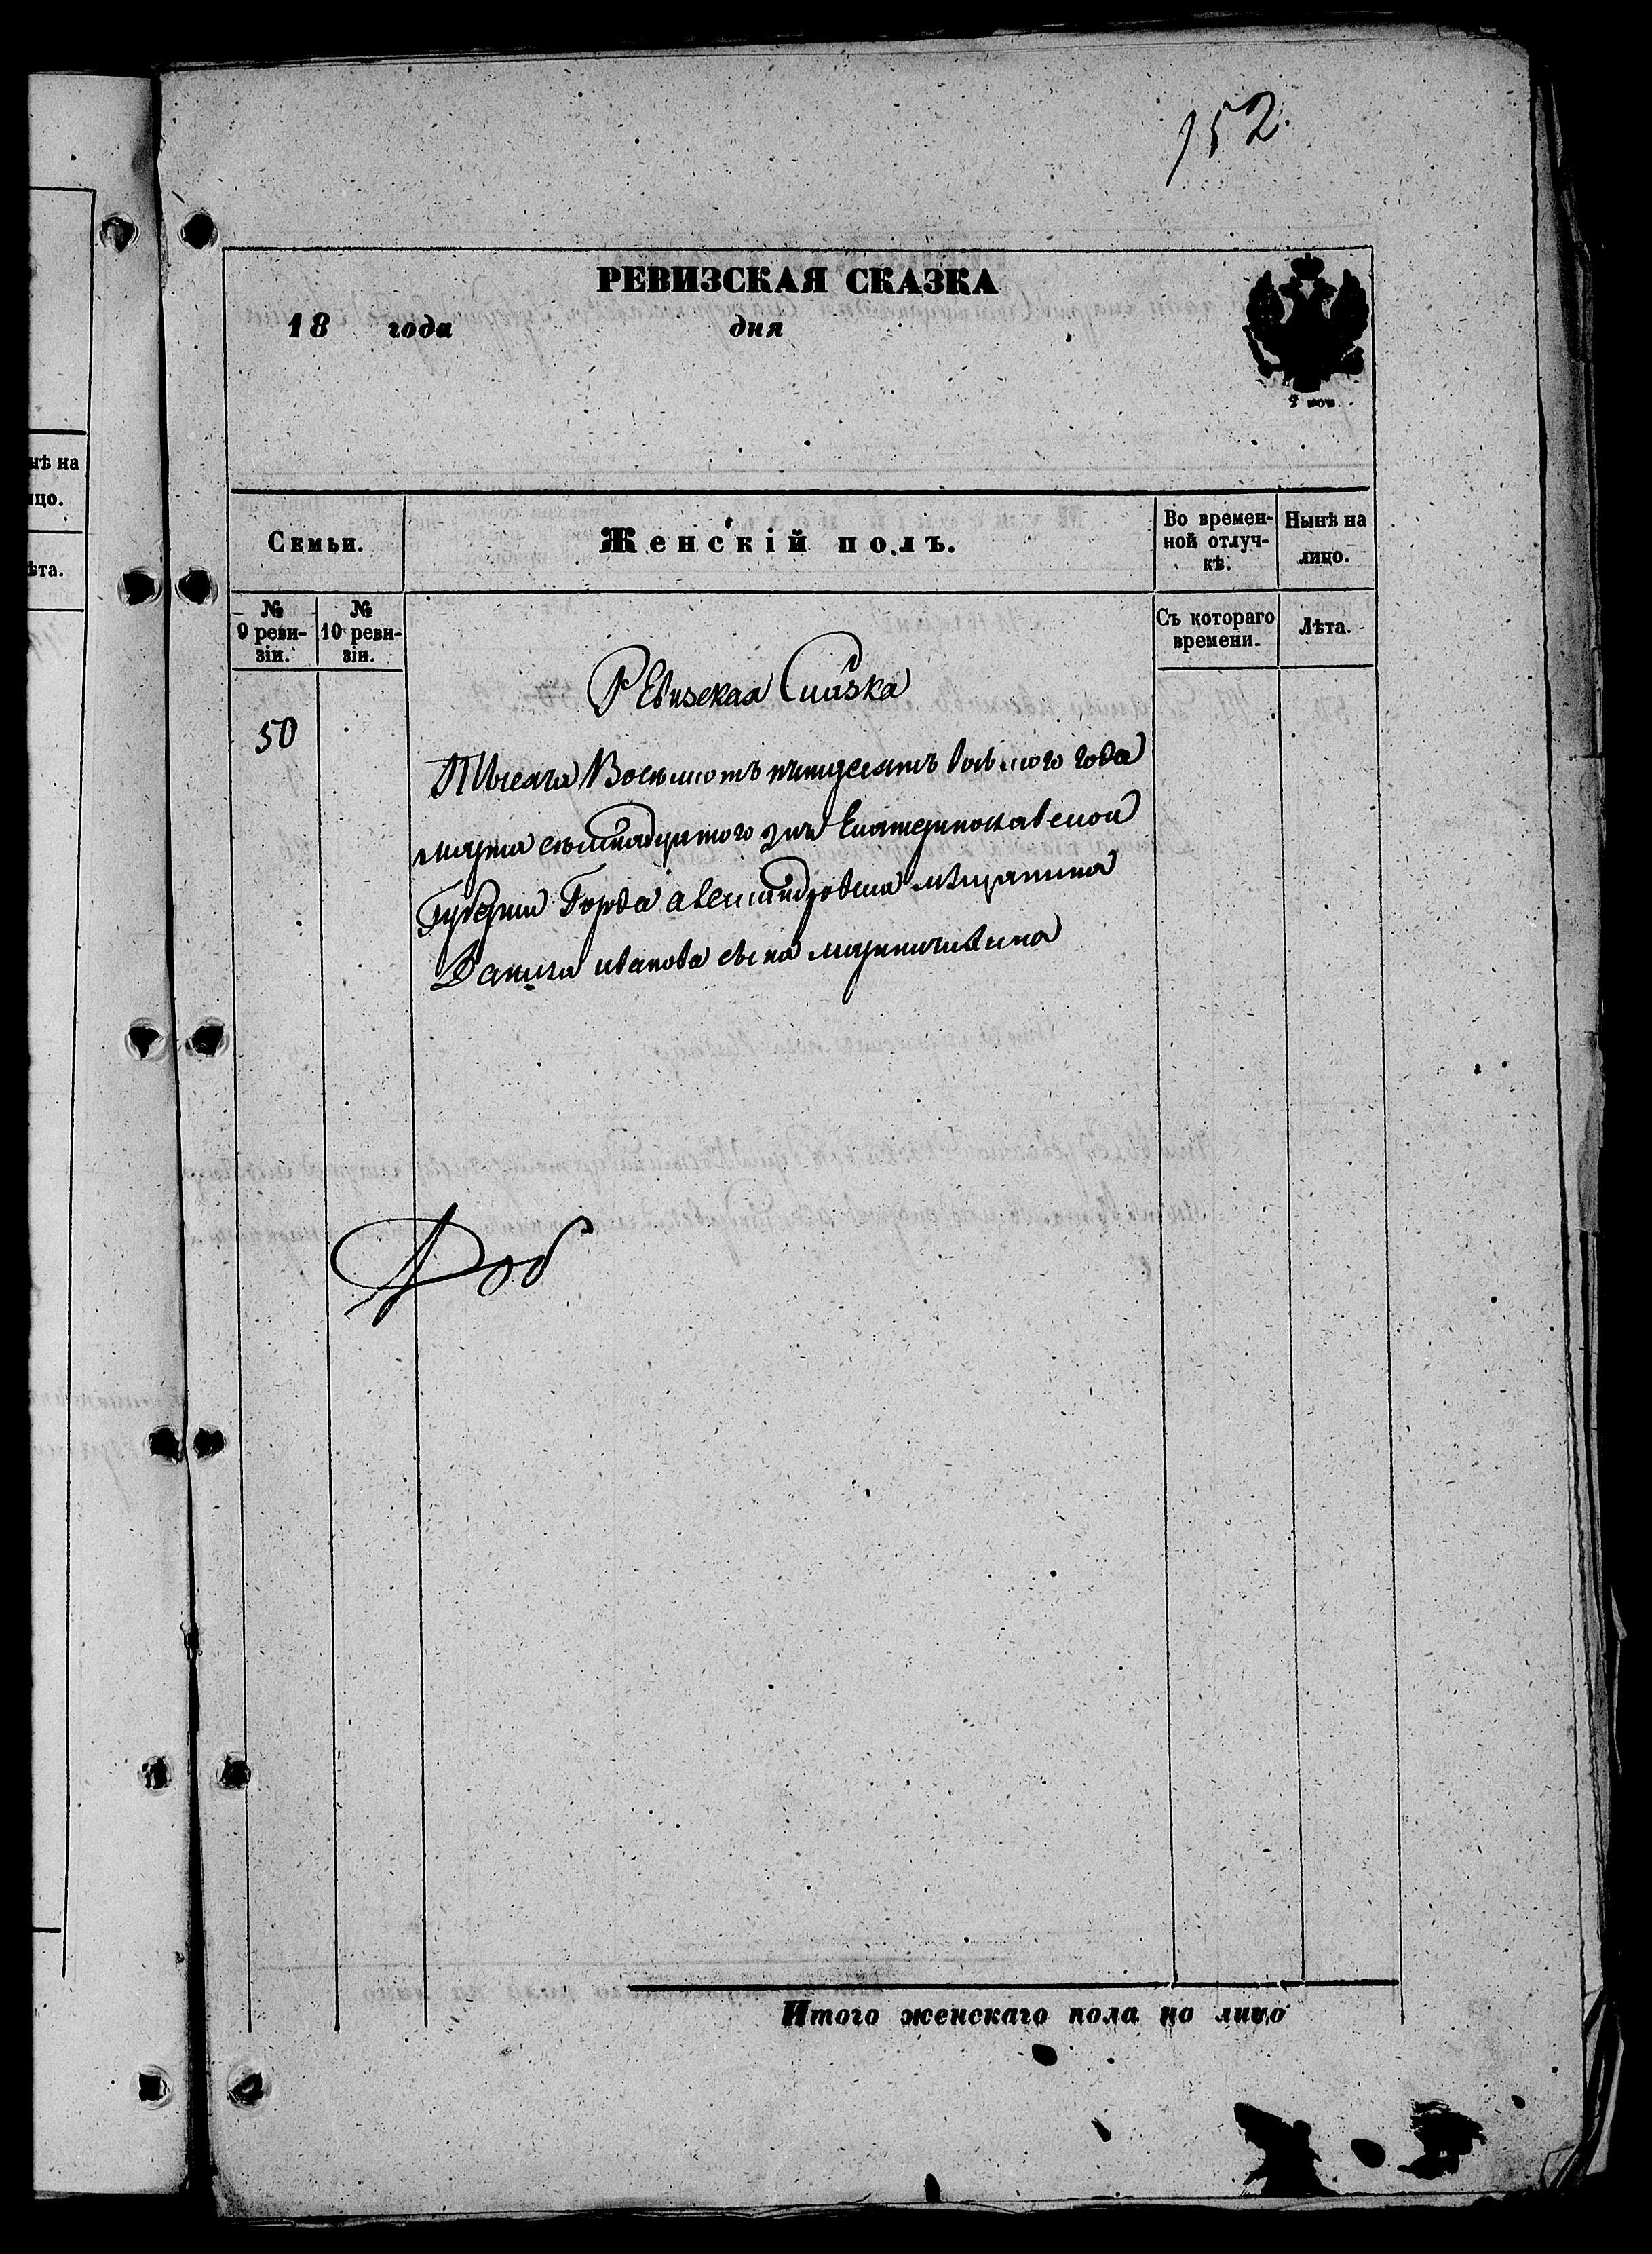 152.
РЕВИЗСКАЯ СКАЗКА
18 года дня
2 коп.
нѣ на
ицо.
ѣта.
Семьи.
Женскій полъ.
Во времен-
ной отлуч-
кѣ.
Нынѣ на
лицо.
№
9 реви-
зіи.
№
10 реви-
зіи.
Съ котораго
времени.
Лѣта.
Ревизская Сказка
50
Тысяча Восемсотъ пятидесятъ восмого года
марта семнадцатого дня Екатеринославской
Губернии Города александровска мѣщанина
Данила иванова сына
Итого женскаго пола на лицо